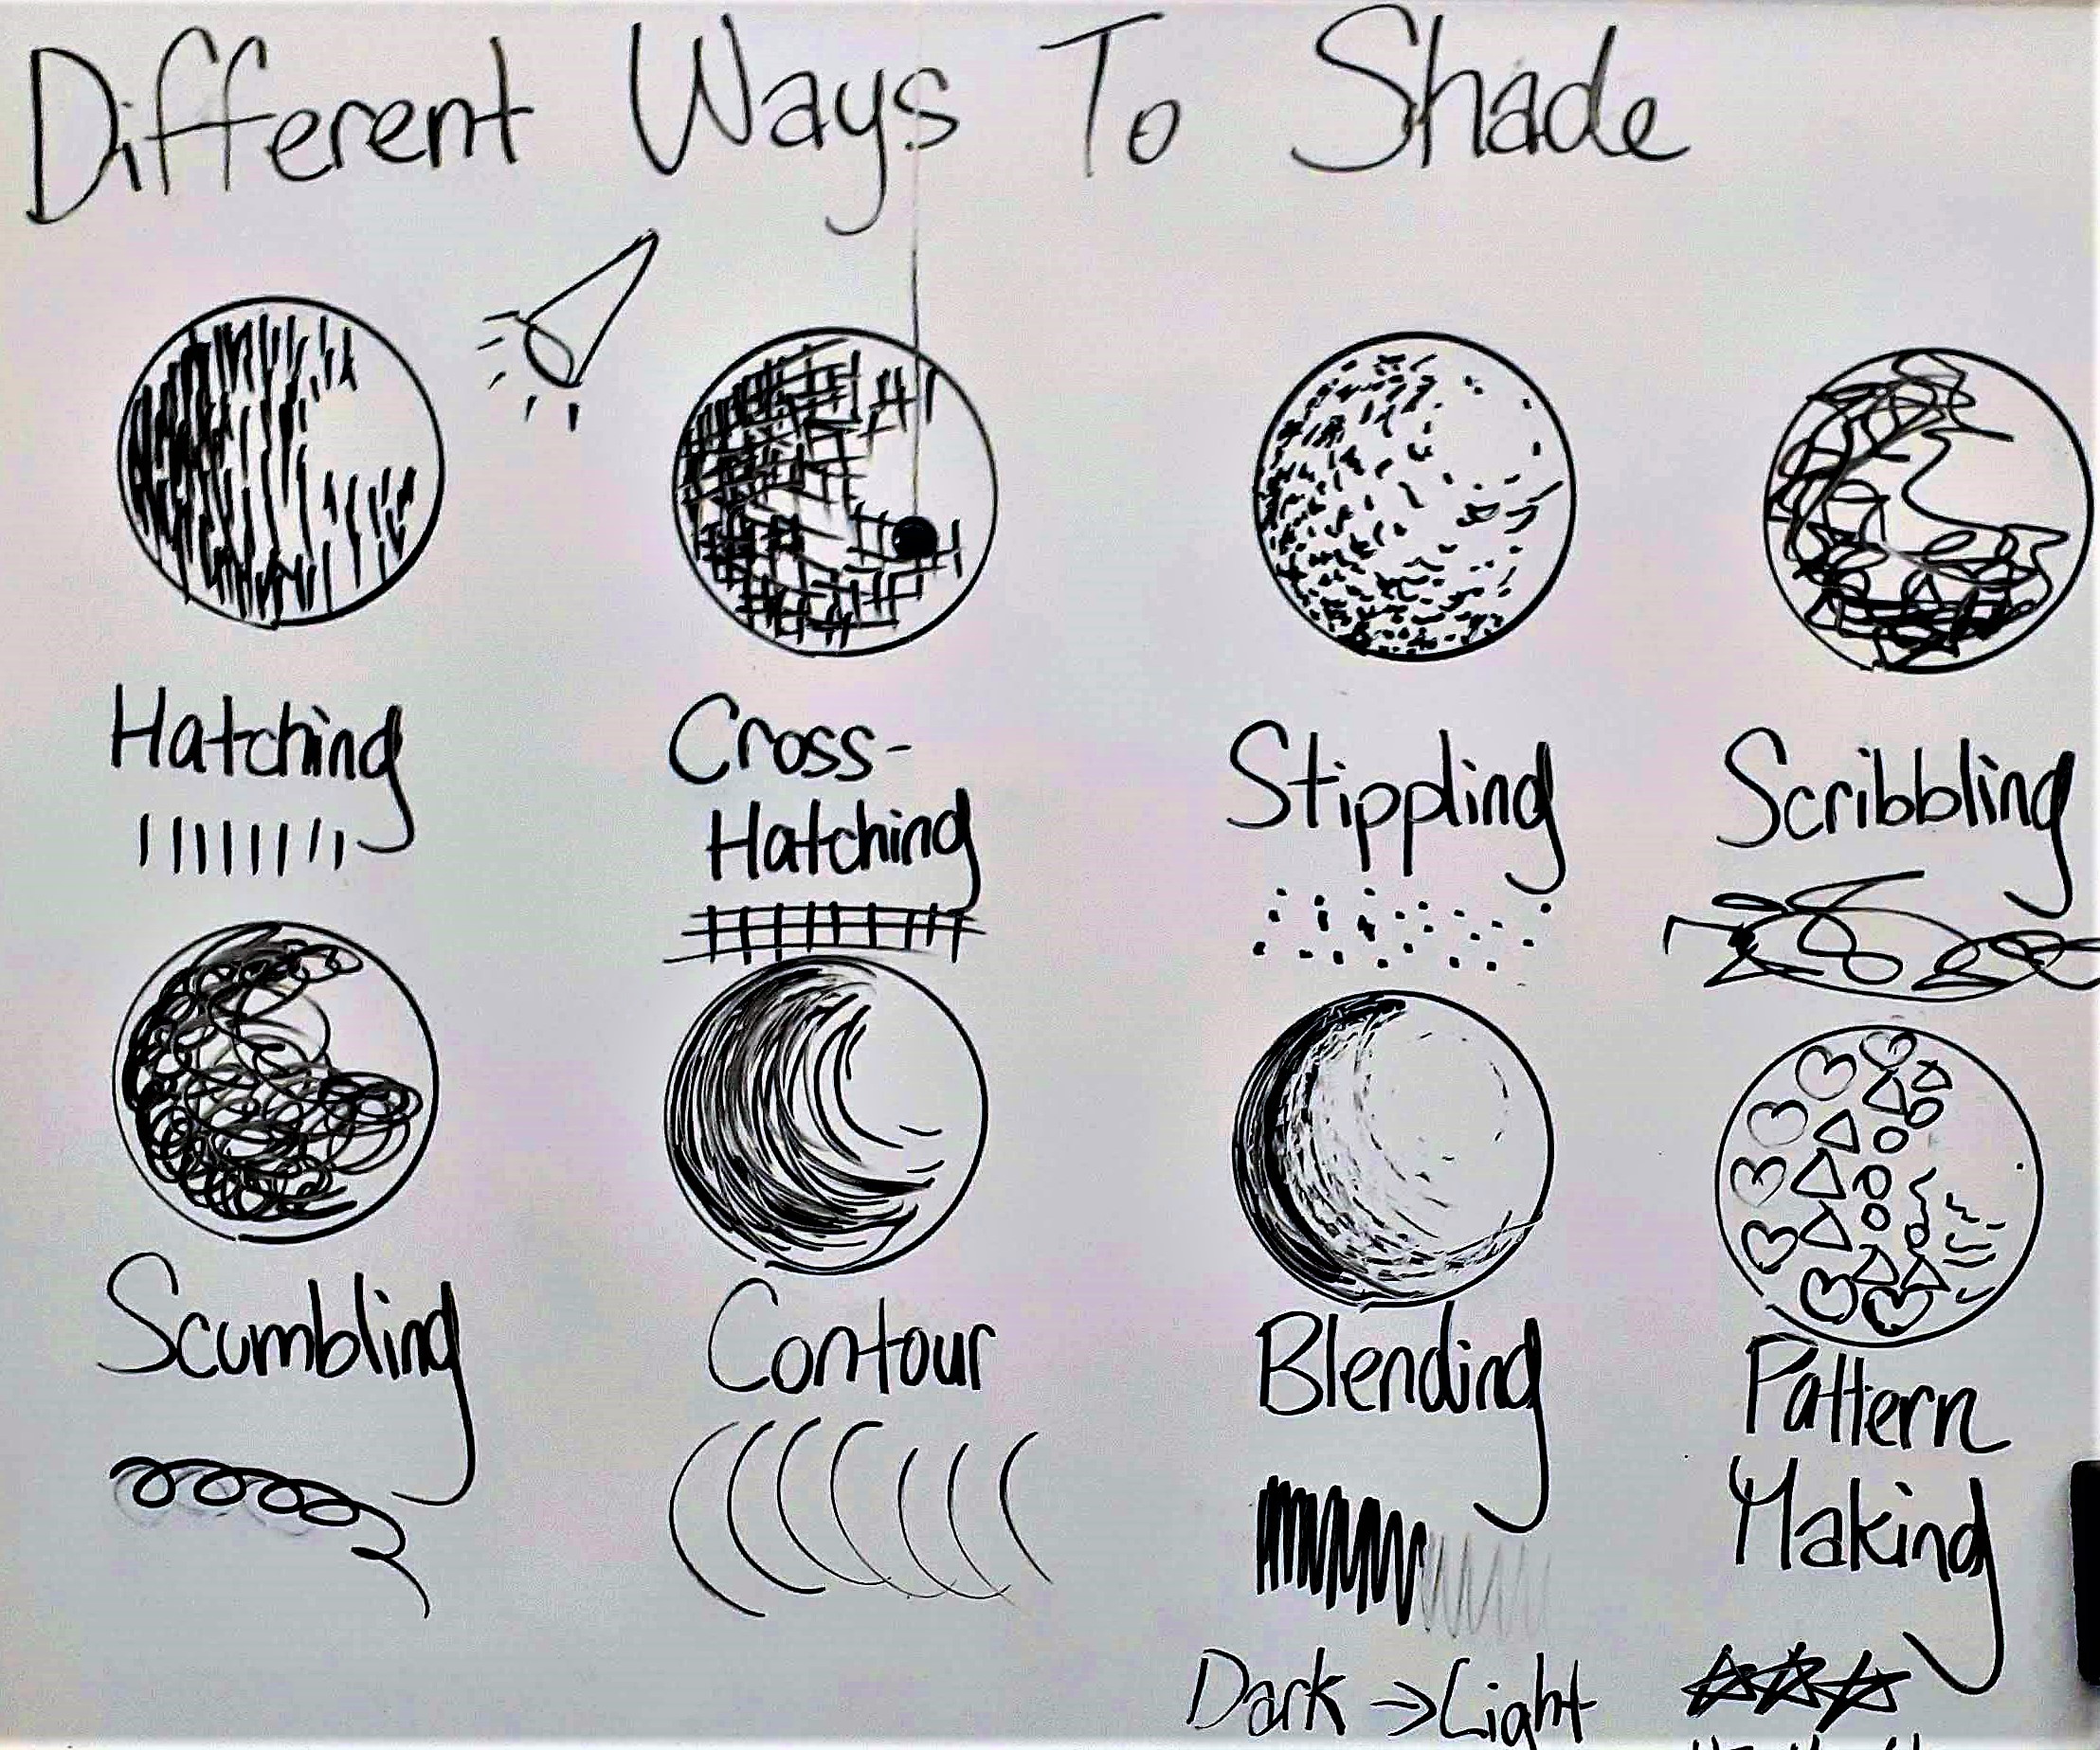 Different Ways To Shade
Hatching
Cross-
Hatching
Stippling
Scribbling
Scumbling
Contour
Blending
Dark → Light
Pattern
Making